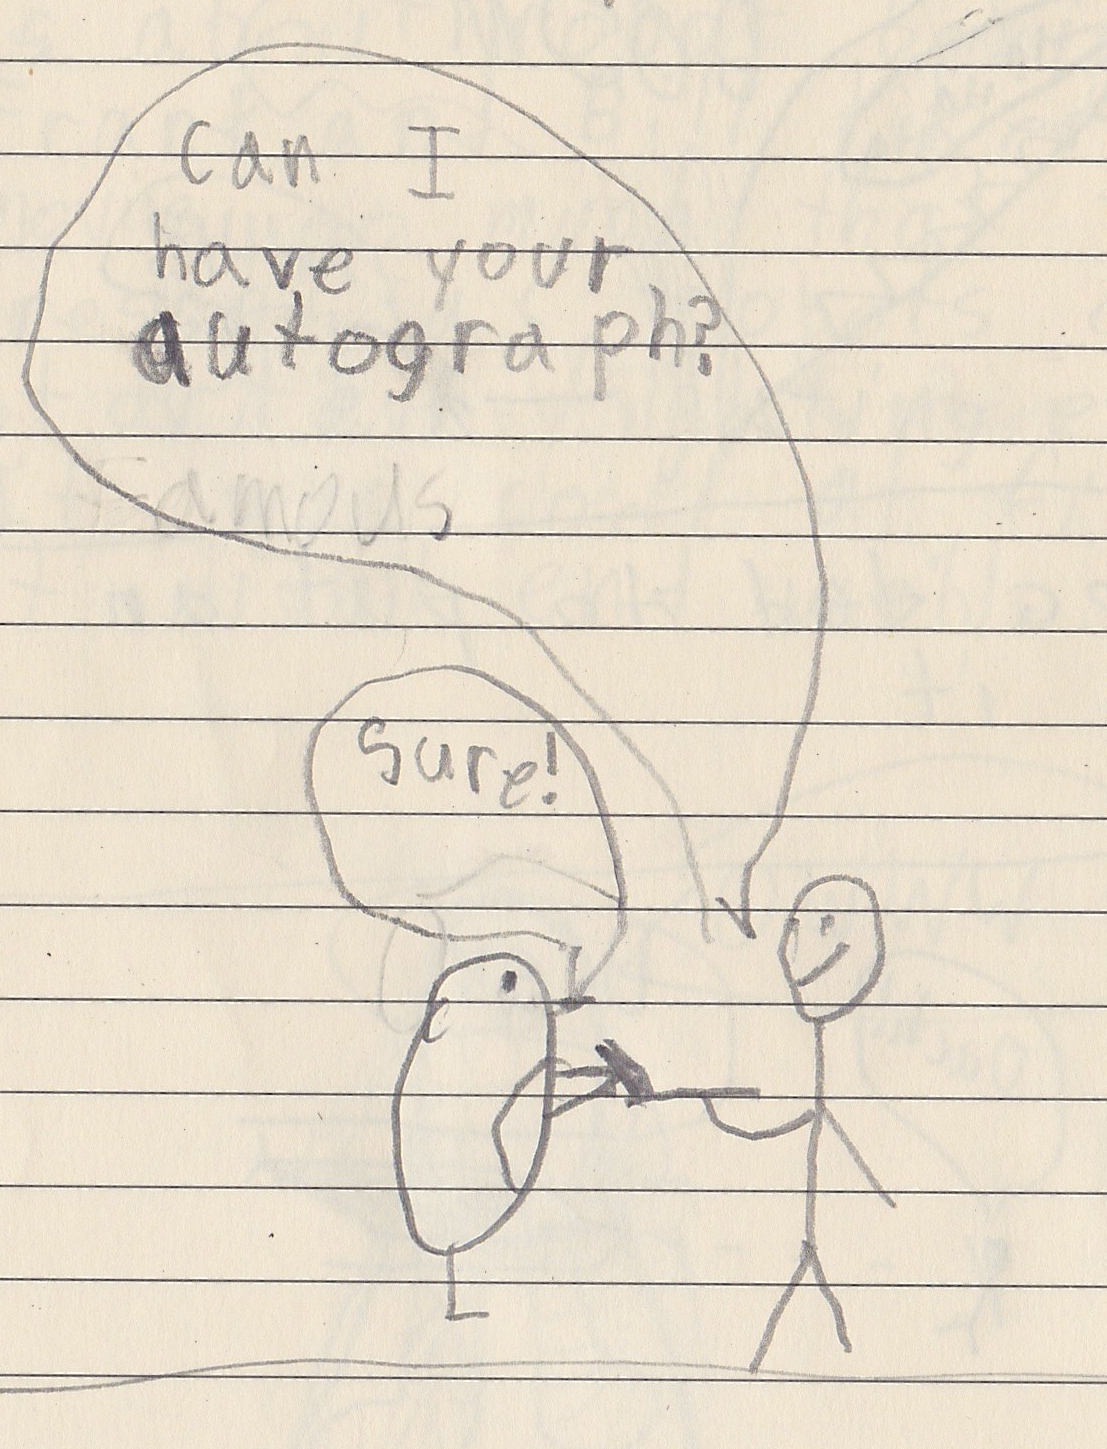 Can I
have your
autograph?
Famous
Sure!